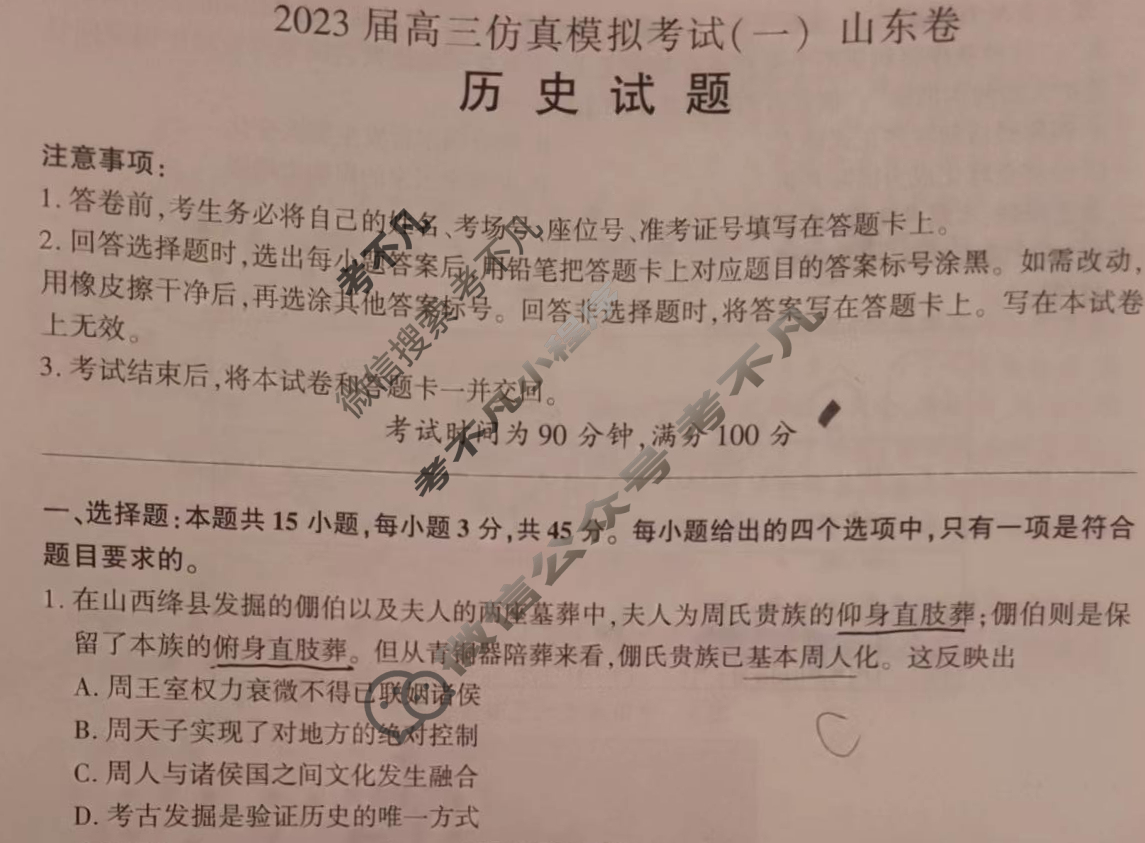 2023 届高三仿真模拟考试(一) 山东卷
历 史 试 题
注意事项:
1. 答卷前,考生务必将自己的姓名、考场号、座位号、准考证号填写在答题卡上。
2. 回答选择题时,选出每小题答案后,用铅笔把答题卡上对应题目的答案标号涂黑。如需改动,
用橡皮擦干净后,再选涂其他答案标号。回答非选择题时,将答案写在答题卡上。写在本试卷
上无效。
3. 考试结束后,将本试卷和答题卡一并交回。
考试时间为 90 分钟,满分 100 分
考不凡
微信搜索 考不凡
考不凡小程序
微信公众号 考不凡
一、选择题:本题共 15 小题,每小题 3 分,共 45 分。每小题给出的四个选项中,只有一项是符合
题目要求的。
1. 在山西绛县发掘的倗伯以及夫人的两座墓葬中,夫人为周氏贵族的仰身直肢葬;倗伯则是保
留了本族的俯身直肢葬。但从青铜器陪葬来看,倗氏贵族已基本周人化。这反映出
A. 周王室权力衰微不得已联姻诸侯
B. 周天子实现了对地方的绝对控制
C
C. 周人与诸侯国之间文化发生融合
D. 考古发掘是验证历史的唯一方式